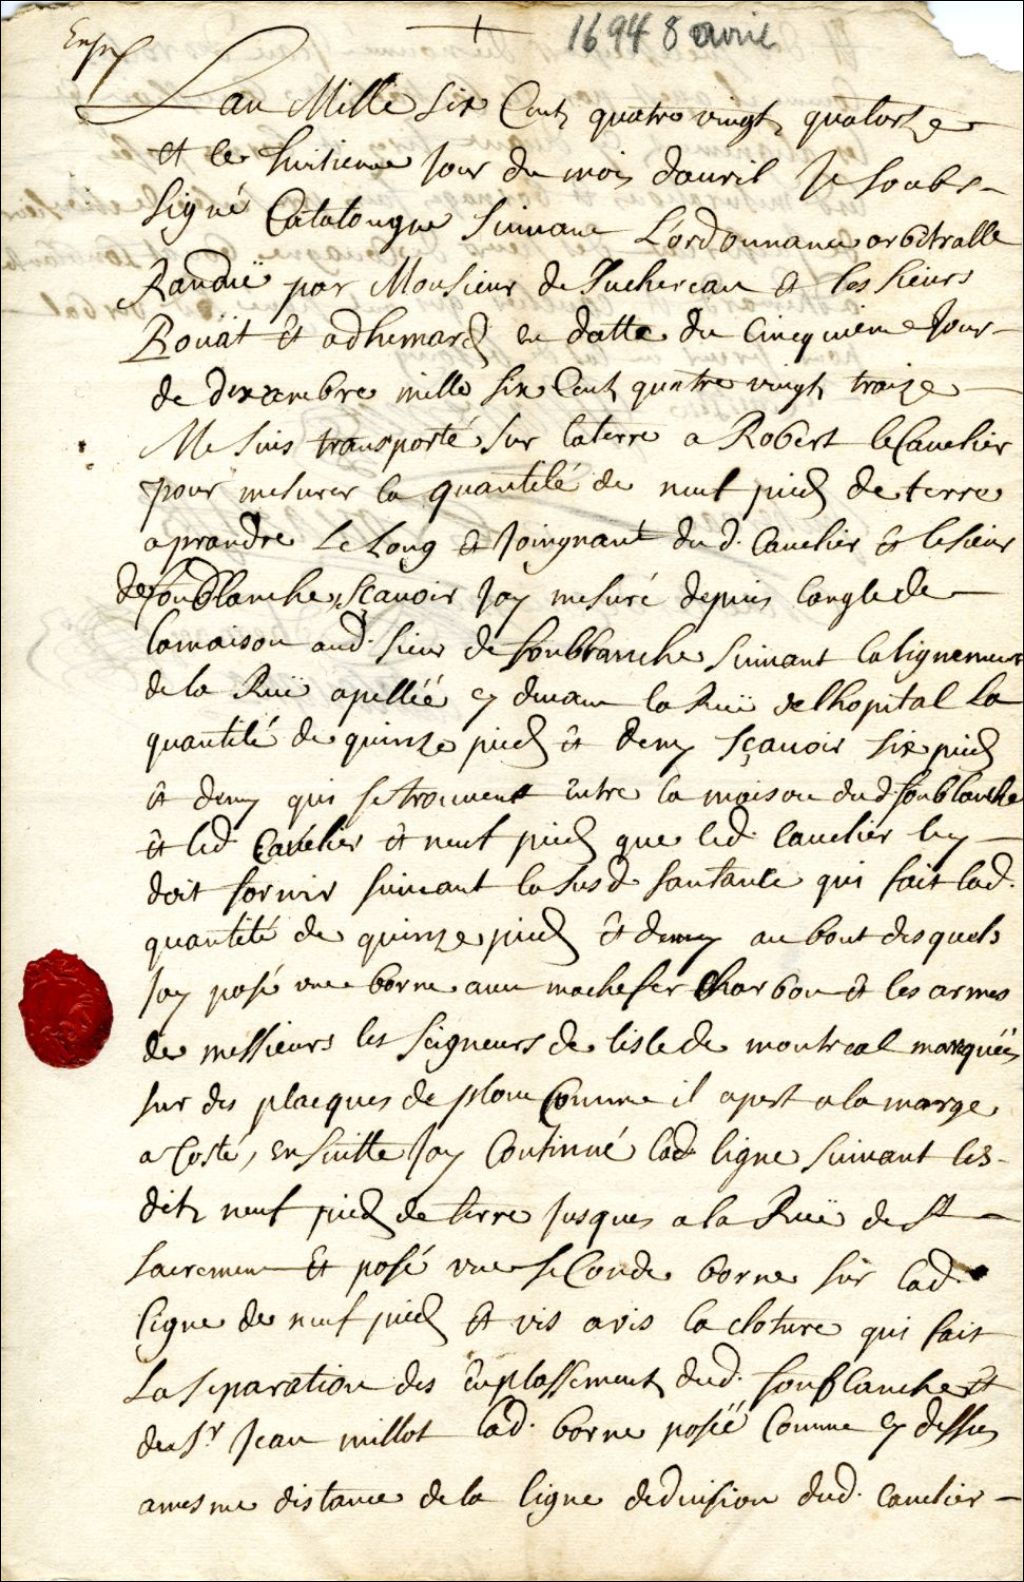 1694 8 avril
Lan Mille Six Cents quatre vingts quatorze
et le huitieme Jour du mois davril Je soubs-
signé Catalongne Suivant Lordonnance arbitralle
Randüe par Monsieur de Juchereau et les sieurs
Roüat et adhemard en datte du Cincquieme Jour
de dexzembre mille six Cents quatre vingts traize
Me Suis transporté Sur la terre a Robert le Cavelier
pour mesurer la quantité de neuf pieds de terre
a prandre Le Long et Joingnant du d. Cavelier et le sieur
de fonblanche, Sçavoir Jay mesuré depuis langle de
la maison aud. sieur de fonblanche Suivant lalignement
de la Ruë apellée cy devant la Ruë de lhopital La
quantité de quinze pieds et demy Sçavoir Six pieds
et demy qui se trouvent Entre la maison du d. fonblanche
et led. Cavelier et neuf pieds que led. Cavelier luy
doit fornir suivant la susd. santance qui fait lad.
quantité de quinze pieds et demy au bout desquels
Jay posé une borne avec machefer Charbon et les armes
de messieurs les Seigneurs de lisle de montreal marquées
sur des placques de plom Comme il apert a la marge
a Costé, En Suitte Jay Continué lad. ligne Suivant les-
dits neuf pieds de terre Jusques a la Ruë de St
Sacrement Et posé une seConde borne sur lad.
ligne de neuf pieds et vis a vis la cloture qui fait
La Separation des Emplassements dud. fonblanche et
du Sr Jean millot lad. borne posée Comme cy dessus
a mesme distance de la ligne de Division dud. Cavelier